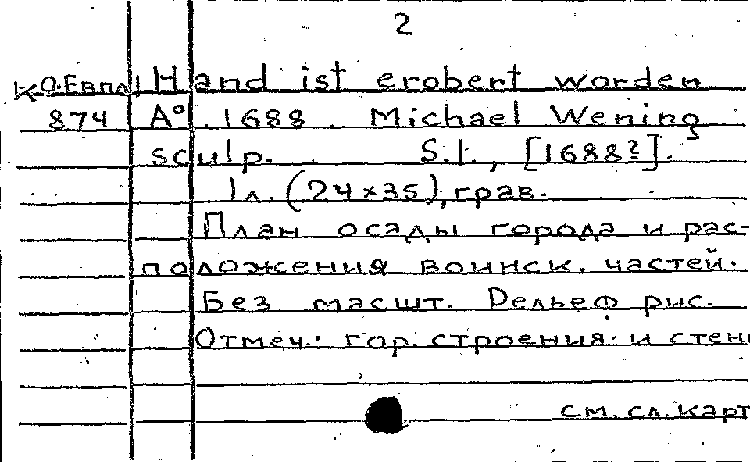 2
К О.Европ. Hand ist erobert worden
874 Aº. 1688. Michael Wening
sculp. S.l., [1688?].
1 л. (24×35), грав.
План осады города и рас-
положения воинск. частей.
Без масшт. Рельеф рис.
Отмеч.: гор. строения и стены
см. сл. карт